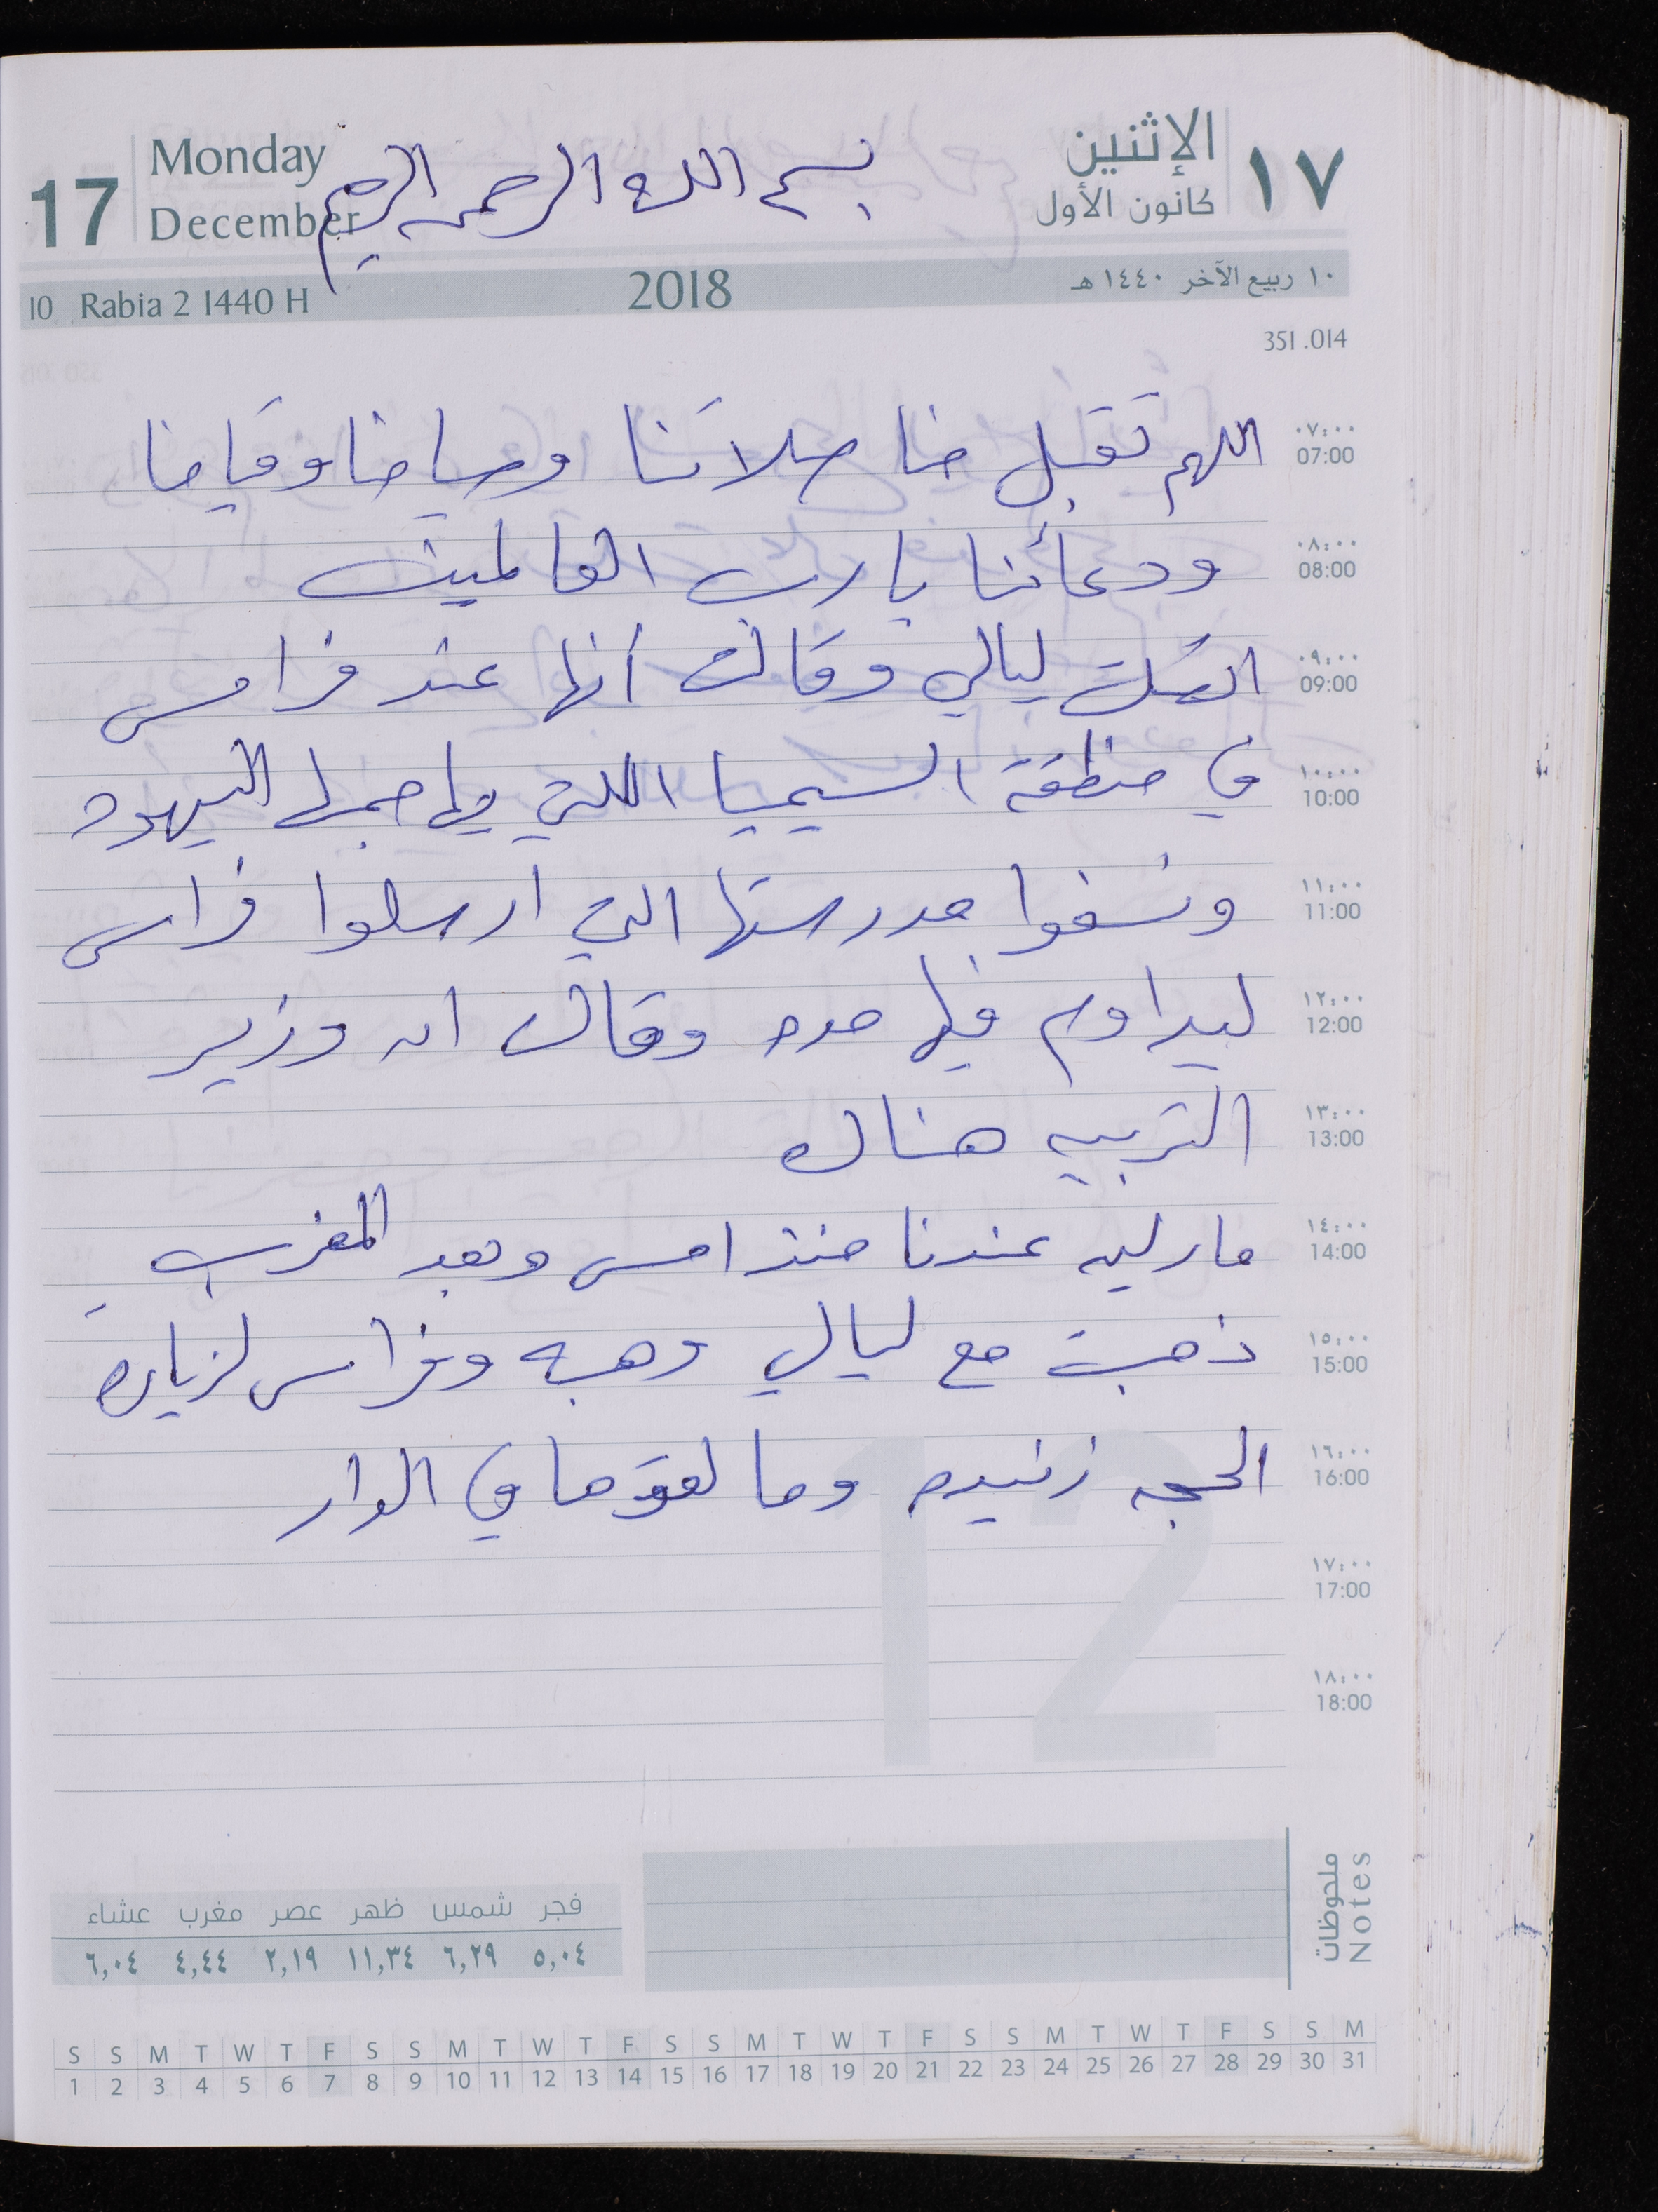 الإثنين ١٧
كانون الأول
Monday 17
December
بسم الله الرحمن الرحيم
١٠ ربيع الآخر ١٤٤٠ هـ
2018
10 Rabia 2 1440 H
351 .014
٠٧:٠٠
07:00
اللهم تقبل منا صلاتنا وصيامنا وقيامنا
٠٨:٠٠
08:00
ودعائنا يا رب العالمين
٠٩:٠٠
09:00
اتصلت ليالي وقالت أنها عند فراس
١٠:٠٠
10:00
في منطقة السيميا اللتي هاجمها اليهود
١١:٠٠
11:00
ونسفوا مدرستها التي ارسلوا فراس
١٢:٠٠
12:00
ليداوم فيها مده وقال ان وزير
١٣:٠٠
13:00
التربيه هناك
١٤:٠٠
14:00
مارليه عندنا منذ امس وبعد المغرب
١٥:٠٠
15:00
ذهبت مع ليالي وهبه وفراس لزياره
١٦:٠٠
16:00
الحجه زنيده وما لقوها في الدار
١٧:٠٠
17:00
١٨:٠٠
18:00
12
ملحوظات
Notes
فجر شمس ظهر عصر مغرب عشاء
٥,٠٤ ٦,٢٩ ١١,٣٤ ٢,١٩ ٤,٤٤ ٦,٠٤
S S M T W T F S S M T W T F S S M T W T F S S M T W T F S S M
1 2 3 4 5 6 7 8 9 10 11 12 13 14 15 16 17 18 19 20 21 22 23 24 25 26 27 28 29 30 31